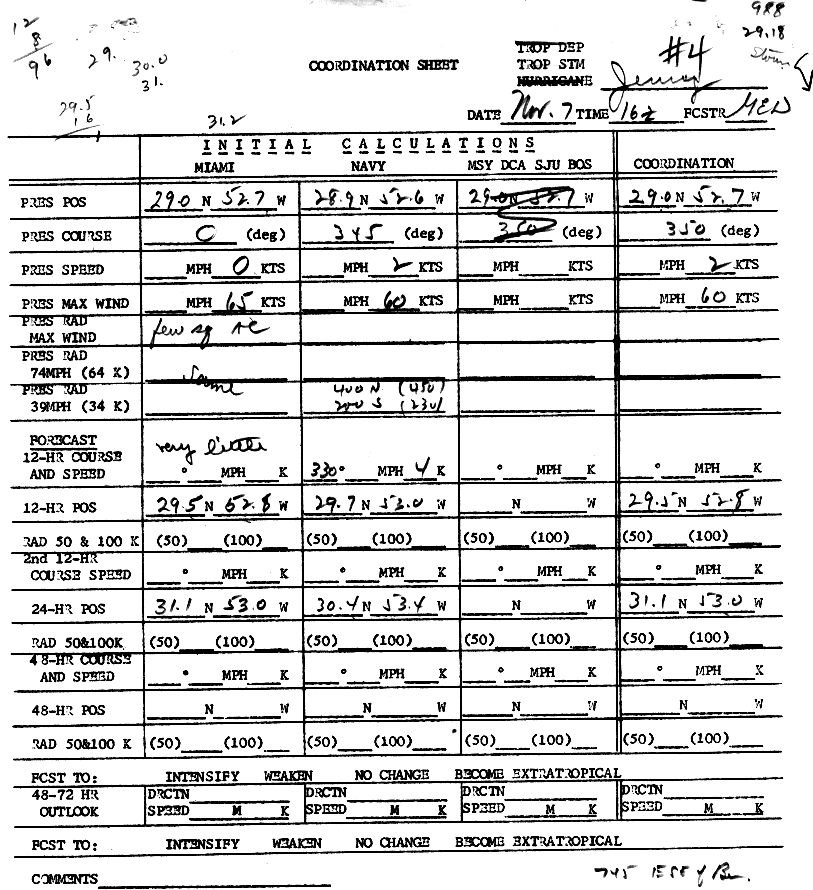 12
8
96
29.
30.0
31.
29.5
16
31.2
988
29.18
Storm
COORDINATION SHEET
TROP DEP
TROP STM
HURRICANE
#4
Jenny
DATE Nov. 7 TIME 16z FCSTR
INITIAL CALCULATIONS
MIAMI NAVY MSY DCA SJU BOS COORDINATION
PRES POS 29.0 N 52.7 W 28.9 N 52.6 W 29.0 N 52.7 W 29.0 N 52.7 W
PRES COURSE 0 (deg) 345 (deg) 350 (deg) 350 (deg)
PRES SPEED MPH 0 KTS MPH 2 KTS MPH KTS MPH 2 KTS
PRES MAX WIND MPH 65 KTS MPH 60 KTS MPH KTS MPH 60 KTS
PRES RAD
MAX WIND few sq
PRES RAD
74MPH (64 K) Same
PRES RAD 400 N (450)
39MPH (34 K) 200 S (230)
FORECAST very little
12-HR COURSE
AND SPEED ° MPH K 330° MPH 4 K ° MPH K ° MPH K
12-HR POS 29.5 N 52.8 W 29.7 N 53.0 W N W 29.5 N 52.8 W
RAD 50 & 100 K (50) (100) (50) (100) (50) (100) (50) (100)
2nd 12-HR
COURSE SPEED ° MPH K ° MPH K ° MPH K ° MPH K
24-HR POS 31.1 N 53.0 W 30.4 N 53.4 W N W 31.1 N 53.0 W
RAD 50&100K (50) (100) (50) (100) (50) (100) (50) (100)
48-HR COURSE
AND SPEED ° MPH K ° MPH K ° MPH K ° MPH K
48-HR POS N W N W N W N W
RAD 50&100 K (50) (100) (50) (100) (50) (100) (50) (100)
FCST TO: INTENSIFY WEAKEN NO CHANGE BECOME EXTRATROPICAL
48-72 HR DRCTN DRCTN DRCTN DRCTN
OUTLOOK SPEED M K SPEED M K SPEED M K SPEED M K
FCST TO: INTENSIFY WEAKEN NO CHANGE BECOME EXTRATROPICAL
COMMENTS 745 ESE of Ber.